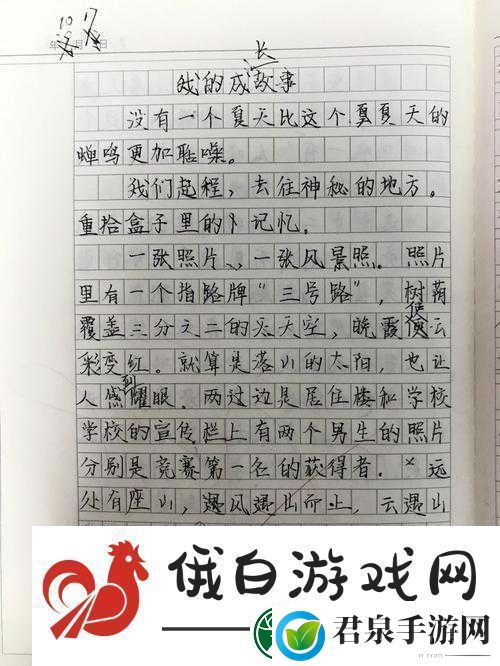 10 17
年 月 日
我的成长故事
没有一个夏天比这个夏夏天的
蝉鸣更加聒噪。
我们起程，去往神秘的地方。
重拾盒子里的卜记忆。
一张照片、一张风景照。照片
里有一个指路牌“三号路”，树荫
覆盖三分之二的天天空，晚霞使云
彩变红。就算是落山的太阳，也让
人感到耀眼。两过边是居住楼和学校
学校的宣传栏上有两个男生的照片
分别是竞赛第一名的获得者。远
处有座山，遇风遇山而上，云遇山
俄白游戏网
君泉手游网